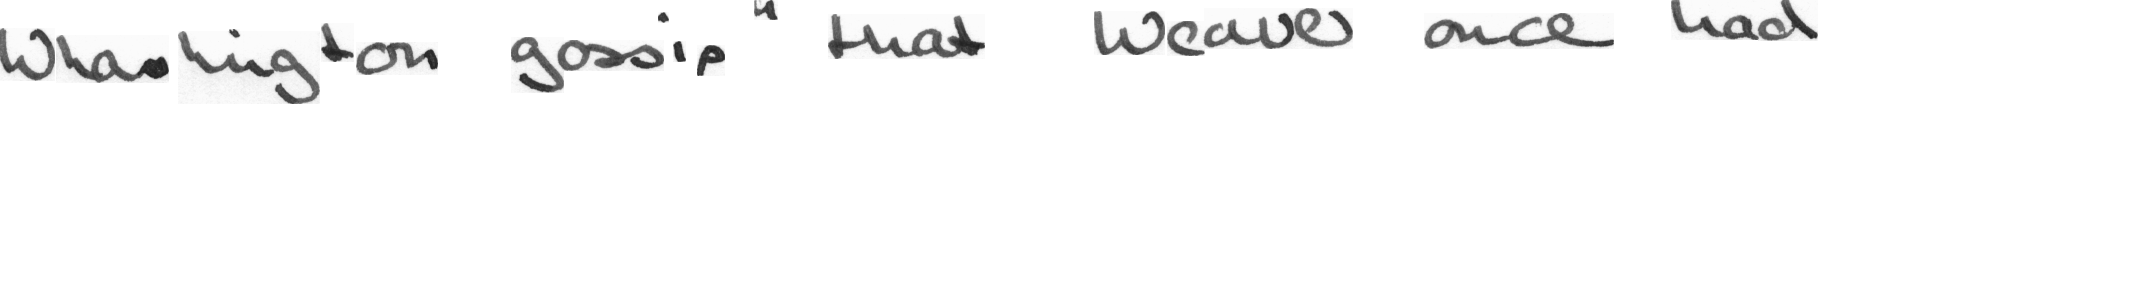 Whashington gossip" that Weaver once had